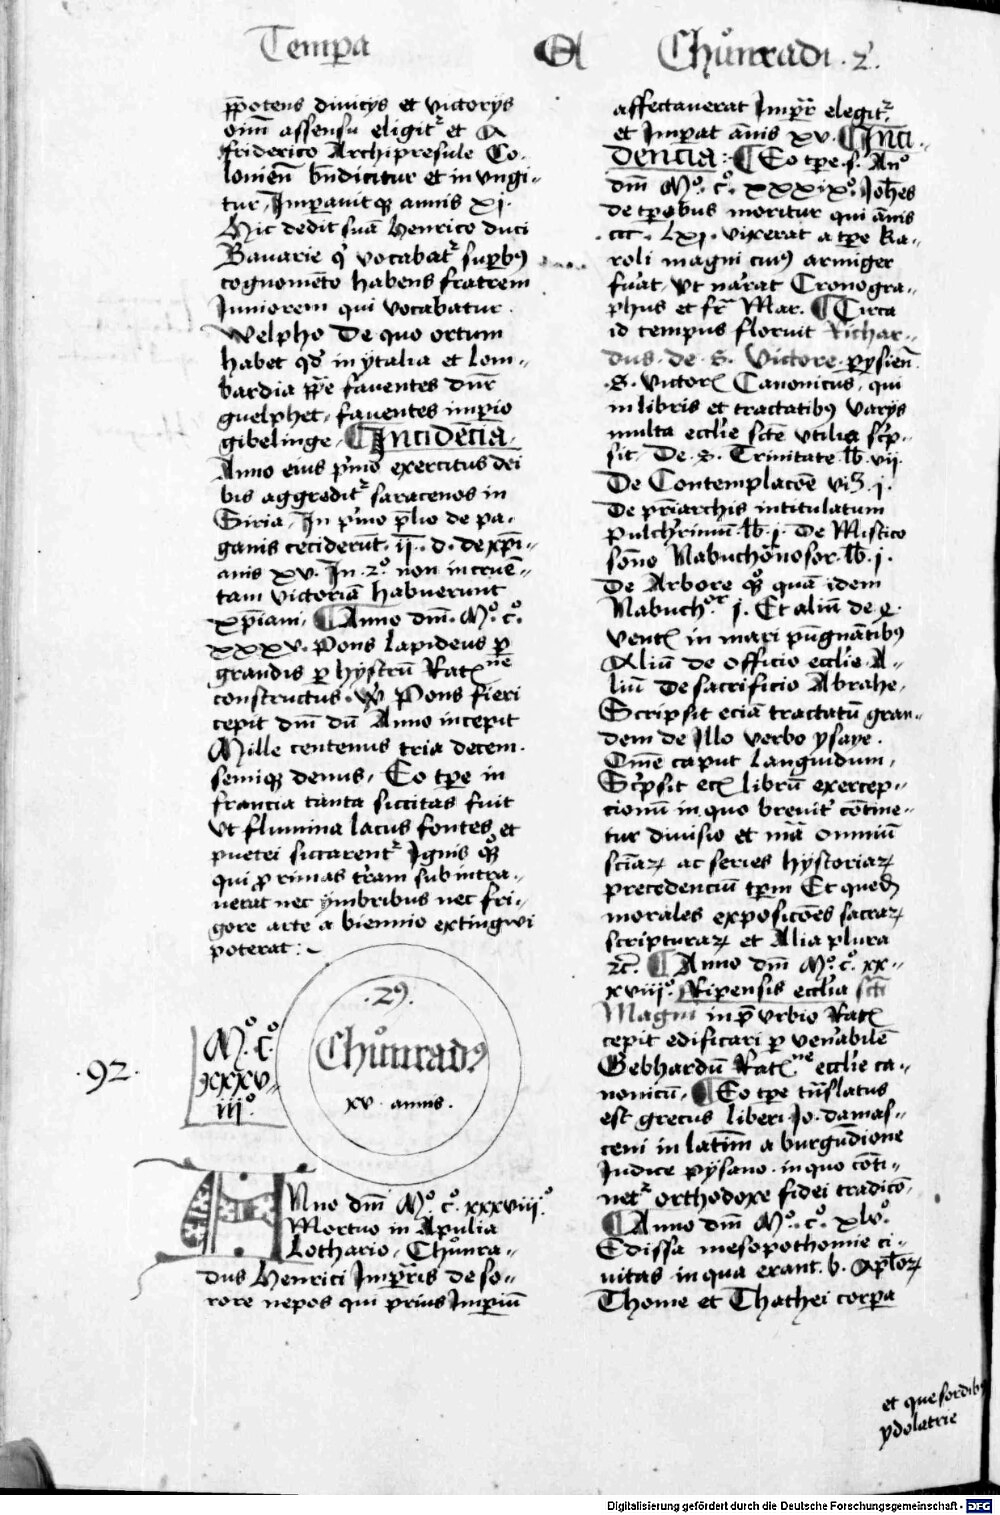 Temp̄a Et Chůnradi .2.
p̄potens diuicijs et victorijs
oīm assensu eligitᷣ et A
friderico Archipresule Co-
loniēn̄ bn̄dicitur et in vngi-
tur, Imp̄auitqꝫ annis xj.
Hic dedit suā Henrico duci
Bauarie qͥ vocabatᷣ sup̄bꝰ
cognomēto habens fratrem
Iuniorem qui vocabatur.
Welpho De quo ortum
habet qd̄ in ytalia et Lom-
bardia p̄pe fauentes
guelphet, fauentes imp̄io
gibelinge. ¶Incidēcia.
Anno eius pͥmo exercitus dei
bis aggreditᷣ saracenos in
Siria, In pͥmo p̄lio de pa-
ganis ceciderūt. ij. d. de xp̄i-
anis xv. In .2°. non incruē-
tam victoriā habuerunt
xp̄iani, ¶Anno dm̄. M°. c°.
xxxv. Pons lapideus p̲
grandis p̲ hystrū Ratꝭⁿᵉ
constructus. Vn̄ Pons fieri
cepit dm̄ dū Anno incepit
Mille centenus tria decem.
semiqꝫ denus, Eo tp̄e in
francia tanta siccitas fuit
vt flumina lacus fontes et
putei siccarentᷣ Ignis qͦꝫ
qui p̲ rimas tͤram subintra-
uerat nec ymbribus nec fri-
gore arte a biennio extingwi
poterat:
.29.
Chůnradꝰ
xv. annis.
.92.
M°. c°.
xxxv-
iii°.
Anno dm̄ M°. c°. xxxviij°.
Mortuo in Apulia
Lothario, Chůnra-
dus Henrici Imp̄ris de so-
rore nepos qui prius Imp̄iū
affectauerat Imp̄r̄ elegitᷣ,
et Imp̄at ānis xv. ¶Inci-
dencia: ¶Eo tp̄e. s. An°
dm̄ M°. c°. xxxix°. Joh̄es
de tp̄obus moritur qui ānis
.ccc. Lxj. vixerat a tp̄e Ka-
roli magni cuiꝰ armiger
fuͣat, vt naͬrat Cronogra-
phus et fr̄ Mar. ¶Circa
id tempus floruit Richar-
dus. de S. Victore. pysien̄.
.S. victorꝭ Canonicus, qui
in libris et tractatibꝰ varijs
multa eccl̄ie sc̄te vtilia scͥp-
sit, De. S. Trinitate. lb̄. vij.
De Contemplacōe viꝫ. j.
De pr̄iarchis intitulatum
pulchͬrimū. lb̄. j. De Mistico
sōno Nabuchōnosor. lb̄. j.
De Arbore qͣꝫ quā idem
Nabuchᵒʳ j. Et aliū de
ventꝭ in mari pūgnātibꝰ
Aliū de officio eccl̄ie. A-
liū De sacrificio Abrahe,
Scripsit eciā tractatū gran-
dem de Illo verbo ysaye.
Om̄e caput Languidum,
Scͥpsit ecꝭ librū excercep-
cionū in quo breuitͬ cōtine-
tur diuisio et mā omniū
sciāꝝ ac series hystoriaꝝ
precedenciū tp̄m Et quedā
morales exposicōes sacraꝝ
scripturaꝝ et Alia plura
ꝛc̄. ¶Anno dm̄ M°. c°. xx-
xviij°. Ripensis eccl̄ia sc̄ti
Magni in p̄vrbio Ratꝭ
cepit edificari p̲ venͬabilē
Gebhardū Ratꝭⁿᵉ eccl̄ie ca-
nonicū, ¶Eo tp̄e tn̄slatus
est grecus liberi Jo. damas-
ceni in latīm a burgūdione
Iudice pysano. in quo cōti-
netᷣ orthodoxe fidei tradicō.
¶Anno dm̄ M°. c°. xlv°.
Edissa mesopothomie ci-
uitas in qua erant. b. Apl̄oꝝ
Thome et Thathei corp̄a
et que sordibꝰ
ydolatrie
Digitalisierung gefördert durch die Deutsche Forschungsgemeinschaft - DFG